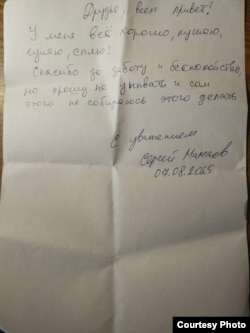 Друзья, всем привет!
У меня всё хорошо, кушаю,
гуляю, сплю!
Спасибо за заботу и беспокойство,
но прошу не унывать и сам
этого не собираюсь этого делать
С уважением
Сергей
07.08.2025
Courtesy Photo